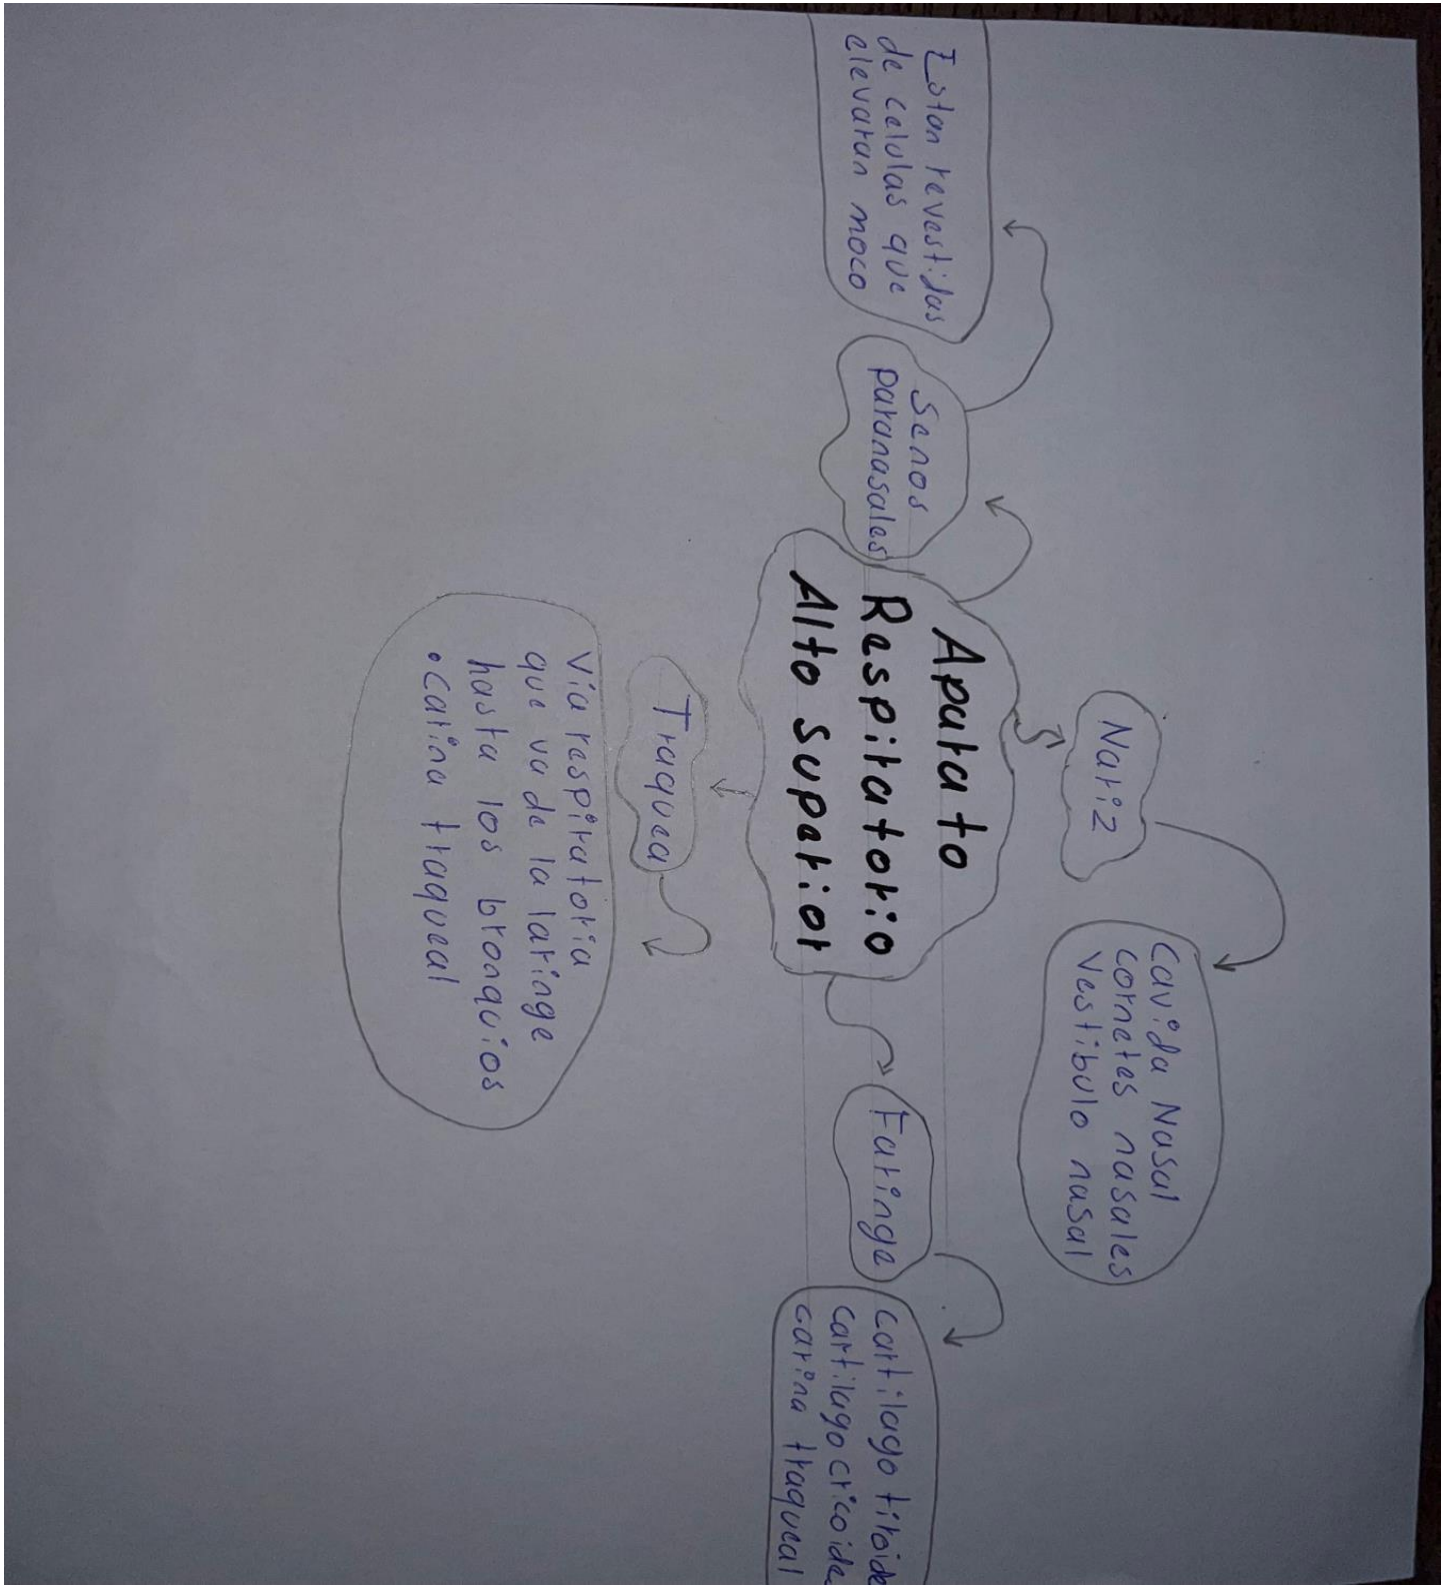 Aparato
Respiratorio
Alto superior
Nariz
Cavida Nasal
cornetes nasales
vestibulo nasal
Senos
paranasales
Estan revestidas
de celulas que
elevaran moco
Faringe
cartilago tiroide
cartilago cricoide
carina traqueal
Traquea
Via respiratoria
que va de la laringe
hasta los bronquios
•carina traqueal